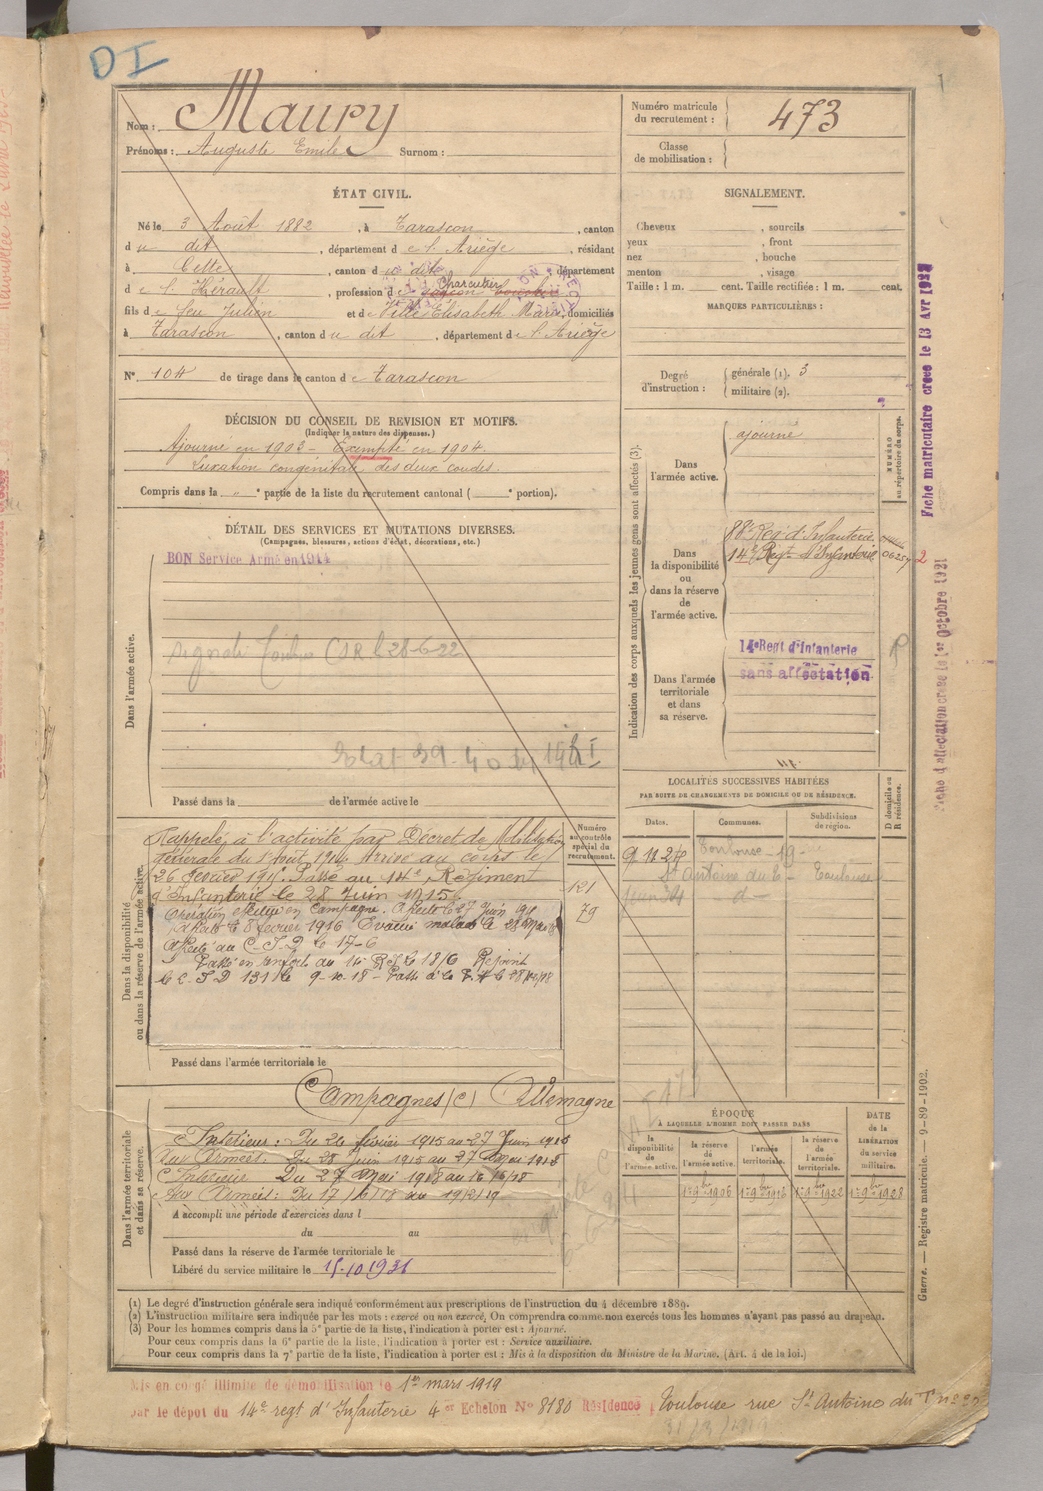 DI
1
Nom : Maury
Prénoms : Auguste Emile Surnom :
Numéro matricule du recrutement : 473
Classe de mobilisation :
ÉTAT CIVIL.
Né le 3 Août 1882, à Tarascon, canton
du dit, département de l'Ariège, résidant
à Cette, canton du dit, département
de l'Hérault, profession de garçon boucher Charcutier
fils de feu Julien et de Elisabeth Marie, domiciliés
à Tarascon, canton du dit, département de l'Ariège
N° 104 de tirage dans le canton de Tarascon
SIGNALEMENT.
Cheveux , sourcils
yeux , front
nez , bouche
menton , visage
Taille : 1 m. cent. Taille rectifiée : 1 m. cent.
MARQUES PARTICULIÈRES :
Degré d'instruction : générale (1). 3
militaire (2).
DÉCISION DU CONSEIL DE REVISION ET MOTIFS.
(Indiquer la nature des dispenses.)
Ajourné en 1903 - Exempté en 1904.
Luxation congénitale des deux coudes.
Compris dans la " e partie de la liste du recrutement cantonal ( e portion).
DÉTAIL DES SERVICES ET MUTATIONS DIVERSES.
(Campagnes, blessures, actions d'éclat, décorations, etc.)
BON Service Armé en 1914
Dans l'armée active.
CSR le 28-6-22
Passé dans la de l'armée active le
Indication des corps auxquels les jeunes gens sont affectés (3).
NUMÉRO au répertoire du corps.
Dans l'armée active.
ajourné
Dans la disponibilité ou dans la réserve de l'armée active.
88e Reg. d'Infanterie
14e Regt d'Infanterie
Dans l'armée territoriale et dans sa réserve.
14e Regt d'Infanterie
sans affectation
LOCALITÉS SUCCESSIVES HABITÉES
PAR SUITE DE CHANGEMENTS DE DOMICILE OU DE RÉSIDENCE.
Dates. Communes. Subdivisions de région. D domicile ou R résidence.
Toulouse - 19 -
St Antoine du T - Toulouse
d -
Dans la disponibilité ou dans la réserve de l'armée active.
Numéro au contrôle spécial du recrutement.
Rappelé à l'activité par Décret de Mobilisation
générale du 1er août 1914. Arrivé au corps le
26 février 1915. Passé au 14e Régiment
d'Infanterie le 28 Juin 1915
121
79
en Campagne. Affecté le 27 Juin
le 8 février 1916 Evacué malade le 28
Affecté au C.I.D. le 17-6
Passé en renfort au 14 RI le 18/6 Rejoint
le C.I.D 131 le 9-10-18 - Passé à la
Passé dans l'armée territoriale le
Campagnes (c) Allemagne
Dans l'armée territoriale et dans sa réserve.
Intérieur : Du 26 février 1915 au 27 Juin 1915
Aux Armées : Du 28 Juin 1915 au 27 Mai 1918
Intérieur Du 27 Mai 1918 au 16/6/18
Aux Armées : Du 17/6/18 au
A accompli une période d'exercices dans l
du au
Passé dans la réserve de l'armée territoriale le
Libéré du service militaire le 15.10.1931
ÉPOQUE
À LAQUELLE L'HOMME DOIT PASSER DANS
DATE de la LIBÉRATION du service militaire.
la disponibilité de l'armée active. la réserve de l'armée active. l'armée territoriale. la réserve de l'armée territoriale.
1er 9bre 1906 1er 9bre 1916 1er 9bre 1922 1er 9bre 1928
(1) Le degré d'instruction générale sera indiqué conformément aux prescriptions de l'instruction du 4 décembre 1889.
(2) L'instruction militaire sera indiquée par les mots : exercé ou non exercé. On comprendra comme non exercés tous les hommes n'ayant pas passé au drapeau.
(3) Pour les hommes compris dans la 5e partie de la liste, l'indication à porter est : Ajourné.
Pour ceux compris dans la 6e partie de la liste, l'indication à porter est : Service auxiliaire.
Pour ceux compris dans la 7e partie de la liste, l'indication à porter est : Mis à la disposition du Ministre de la Marine. (Art. 4 de la loi.)
Mis en congé illimité de démobilisation le 1er mars 1919
par le dépôt du 14e regt d'Infanterie 4e Echelon N° 8180 Résidence Toulouse rue St Antoine du T
Fiche matriculaire créée le 13 Avr
Fiche d'affectation créée le 1er Octobre 1921
Guerre. — Registre matricule. — 9-89-1902.